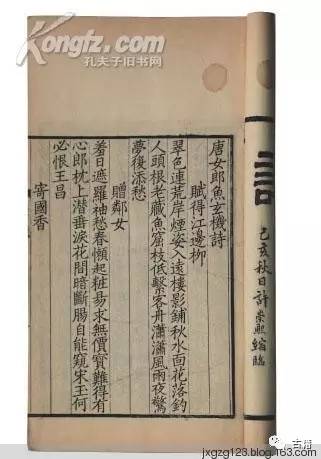 Kongfz.com
孔夫子旧书网
己亥秋日許
崇熙縮臨
唐女郎魚玄機詩
賦得江邊柳
翠色連荒岸煙姿入遠樓影鋪秋水面花落釣
人頭根老藏魚窟枝低繫客舟瀟瀟風雨夜驚
夢復添愁
贈鄰女
羞日遮羅袖愁春懶起粧易求無價寶難得有
心郎枕上潛垂淚花間暗斷腸自能窺宋玉何
必恨王昌
寄國香
古籍
jxgzg123.blog.163.com